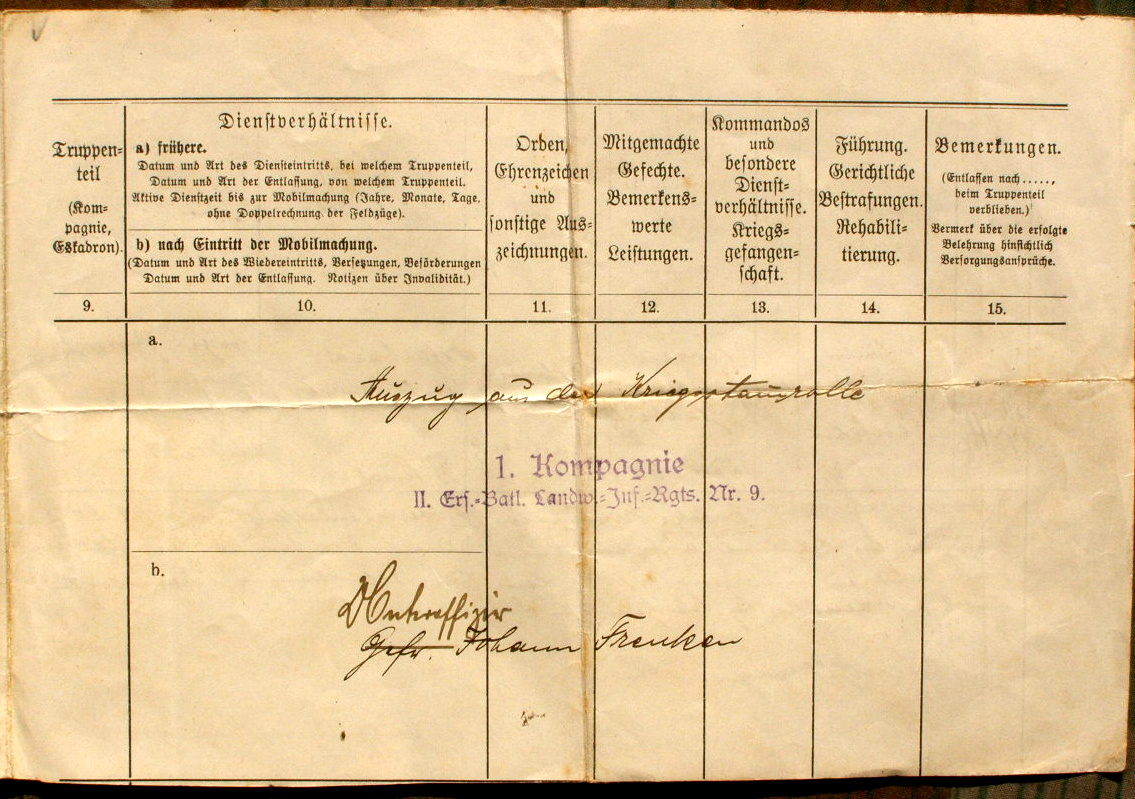 Truppen-
teil
(Kom-
pagnie,
Eskadron).
Dienstverhältnisse.
a) frühere.
Datum und Art des Diensteintritts, bei welchem Truppenteil,
Datum und Art der Entlassung, von welchem Truppenteil.
Aktive Dienstzeit bis zur Mobilmachung (Jahre, Monate, Tage,
ohne Doppelrechnung der Feldzüge).
b) nach Eintritt der Mobilmachung.
(Datum und Art des Wiedereintritts, Versetzungen, Beförderungen
Datum und Art der Entlassung. Notizen über Invalidität.)
Orden,
Ehrenzeichen
und
sonstige Aus-
zeichnungen.
Mitgemachte
Gefechte.
Bemerkens-
werte
Leistungen.
Kommandos
und
besondere
Dienst-
verhältnisse.
Kriegs-
gefangen-
schaft.
Führung.
Gerichtliche
Bestrafungen.
Rehabili-
tierung.
Bemerkungen.
(Entlassen nach ......,
beim Truppenteil
verblieben.)
Vermerk über die erfolgte
Belehrung hinsichtlich
Versorgungsansprüche.
9. 10. 11. 12. 13. 14. 15.
a.
Auszug aus der Kriegsstammrolle
1. Kompagnie
II. Ers.-Batl. Landw.-Inf.-Rgts. Nr. 9.
b.
Unteroffizier
Gefr. Johann Frenken